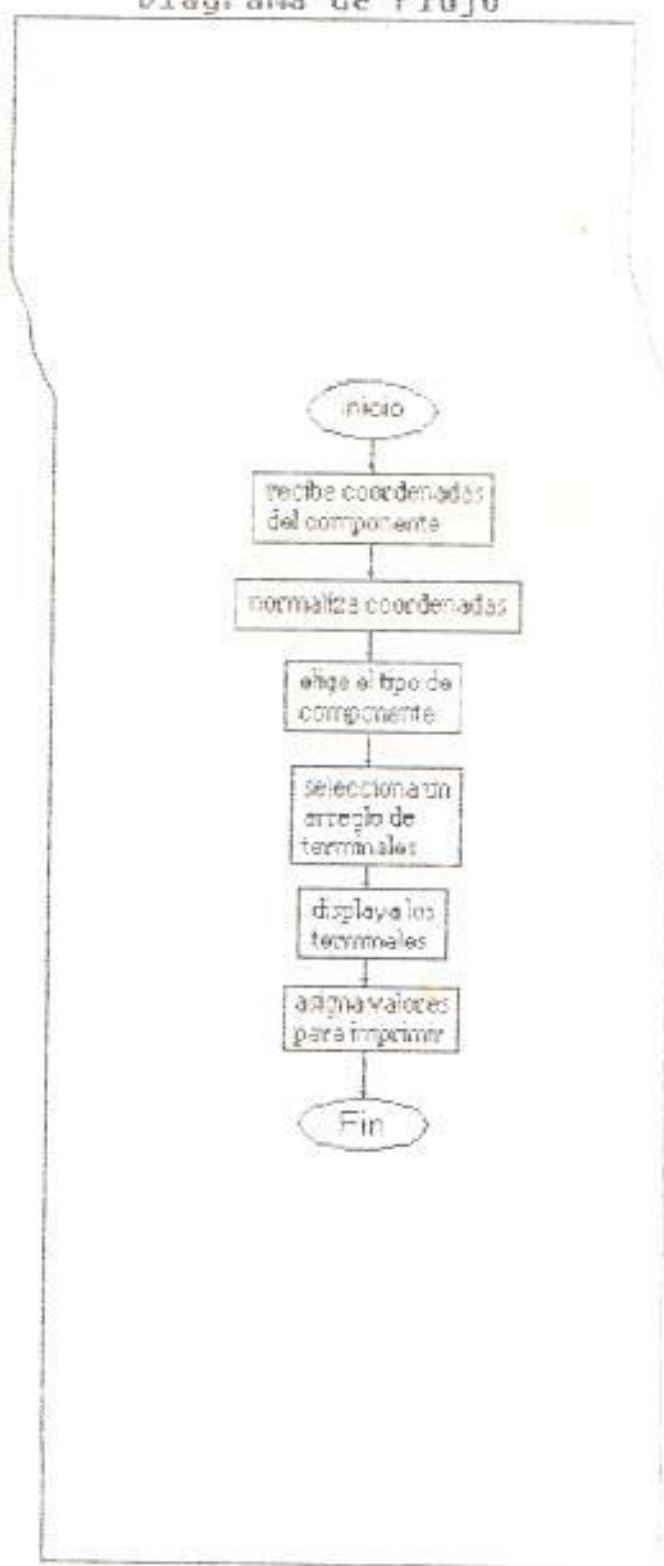 Diagrama de Flujo
inicio
recibe coordenadas
del componente
normaliza coordenadas
elige el tipo de
componente
selecciona un
arreglo de
terminales
displaya los
terminales
asigna valores
para imprimir
Fin